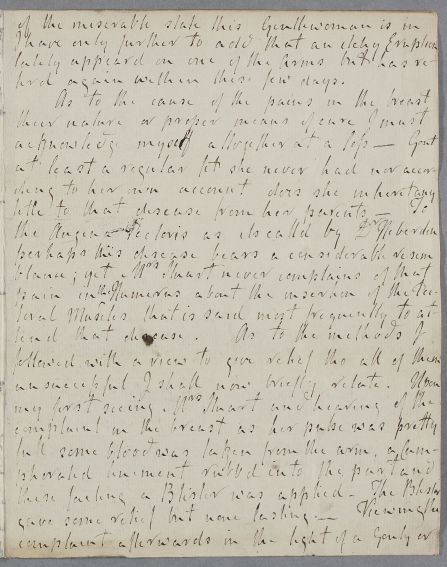 of the miserable state this Gentlewoman is in
I have only further to add, that an itchy Eruption
lately appeared on one of the Arms but has re
tired again within these few days.
As to the cause of the pains in the breast
their nature or proper means of cure I must
acknowledge myself altogether at a loss — Gout
at least a regular fit she never had nor accor
ding to her own account does she inherit any
title to that disease from her parents — To
the Angina Pectoris as its calld by Dr Heberden
perhaps this disease bears a considerable resem
blance; yet Mrs Stuart never complains of that
pain in the Humerus about the insertion of the Pec
toral Muscles that is said most frequently to at
tend that disease. As to the methods I
followed with a view to give relief tho all of them
unsuccessful I shall now briefly relate. Upon
my first seeing Mrs Stuart and hearing of the
complaint in the breast as her pulse was pretty
full some blood was taken from the arm, a Cam
phorated liniment rubbd into the part and
these failing a Blister was applied — The Blister
gave some relief but none lasting — Viewing the
complaint afterwards in the light of a Gouty or